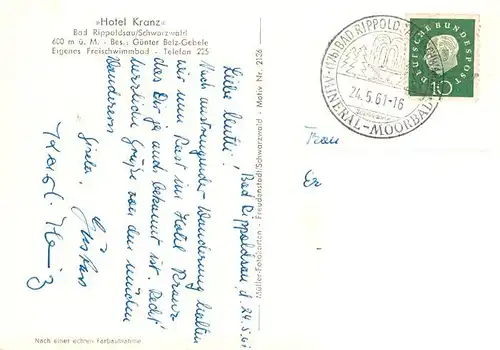 »Hotel Kranz«
Bad Rippoldsau/Schwarzwald
600 m ü. M. - Bes.: Günter Belz-Gebele
Eigenes Freischwimmbad - Telefon 225
Bad Rippoldsau, d. 24.5.61
Liebe
Nach anstrengender Wanderung halten
wir nun Rast im Hotel Kranz
das Dir ja auch bekannt ist. Recht
herzliche Grüße von den müden
Wanderern
Gisela
Müller-Fotokarten - Freudenstadt/Schwarzwald - Motiv Nr. 2136
Nach einer echten Farbaufnahme
BAD RIPPOLDS
24.5.61-16
MINERAL-MOORBAD
DEUTSCHE BUNDESPOST
10
Frau